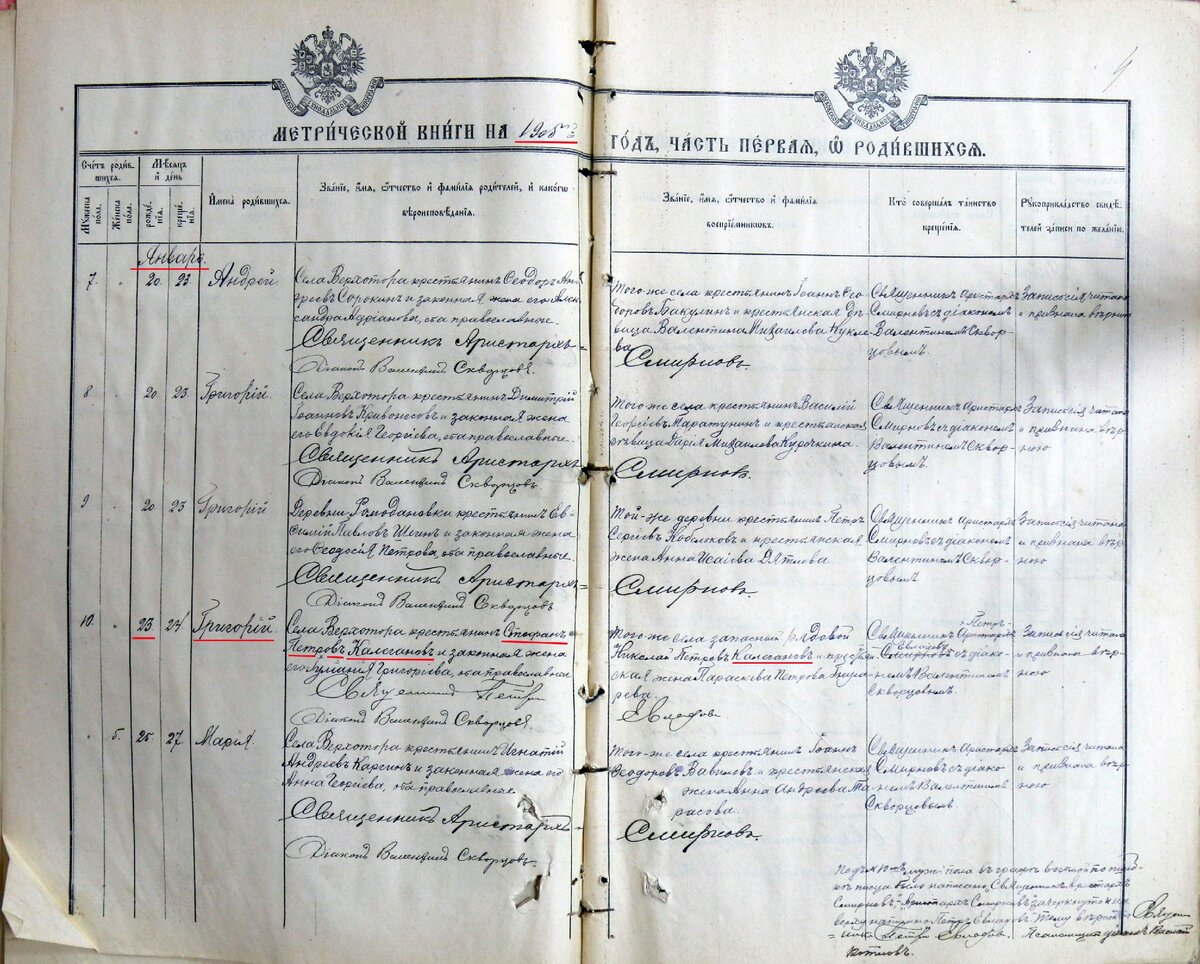 4
МЕТРИ́ЧЕСКОЙ КНИ́ГИ НА 1906й
ГО́ДЪ, ЧА́СТЬ ПЕ́РВАЯ, Ѿ РОДИ́ВШИХСЯ.
Сче́тъ роди́в
шихся.
Му́жеска
пола.
Же́нска
пола.
Мѣ́сяцъ
и де́нь
рожде́
нія.
креще́
нія.
И́мена роди́вшихся.
Зва́ніе, и́мя, ѻ́тчество и фами́лія роди́телей, и како́гѡ
вѣроисповѣ́данія.
Зва́ніе, и́мя, ѻ́тчество и фами́лія
воспрїе́мниковъ.
Кто̀ соверша́лъ та́инство
креще́нія.
Рукоприкла́дство свидѣ́
телей за́писи по жела́нію.
Январь.
7. 20. 23. Андрей.
Села Верхотора крестьянинъ Ѳеодоръ Ан-
дреевъ Сорокинъ и законная жена его Алек-
сандра Адріанова, оба православные.
Священникъ Аристархъ
Діаконъ Валентинъ Скворцовъ.
Того-же села крестьянинъ Іоаннъ Ѳео-
доровъ Бакулинъ и крестьянская дѣ-
вица Валентина Михаилова Кукле-
ва.
Смирновъ.
Священникъ Аристархъ
Смирновъ съ діакономъ
Валентиномъ Сквор-
цовымъ.
Запись сія читана
и признана вѣрною
8 20 23. Григорій.
Села Верхотора крестьянинъ Димитрій
Іоанновъ Кривоносовъ и законная жена
его Евдокія Георгіева, оба православные.
Священникъ Аристархъ
Діаконъ Валентинъ Скворцовъ.
Того-же села крестьянинъ Василій
Георгіевъ Паратунинъ и крестьянская
дѣвица Марія Михаилова Курочкина.
Смирновъ.
Священникъ Аристархъ
Смирновъ съ діакономъ
Валентиномъ Сквор-
цовымъ.
Запись сія читана
и признана вѣр-
ною
9 20 23 Григорій
Деревни Ромодановки крестьянинъ Ев-
симій Павловъ Шегинъ и законная жена
его Ѳеодосія Петрова, оба православные.
Священникъ Аристархъ
Діаконъ Валентинъ Скворцовъ.
Той-же деревни крестьянинъ Петръ
Сергіевъ Кобелковъ и крестьянская
жена Анна Исаіева Дятлова
Смирновъ.
Священникъ Аристархъ
Смирновъ съ діакономъ
Валентиномъ Сквор-
цовымъ.
Запись сія читана
и признана вѣр-
ною
10. 23 24 Григорій.
Села Верхотора крестьянинъ Стефанъ
Петровъ Калгановъ и законная жена
его Іуліанія Григорьева, оба православные
Священникъ Петръ
Діаконъ Валентинъ Скворцовъ.
Того-же села запасный рядовой
Николай Петровъ Калгановъ и крестьян-
ская жена Параскева Петрова
рева.
Евладовъ
Петръ
Священникъ Аристархъ
Евладовъ
Смирновъ съ діако-
номъ Валентиномъ
Скворцовымъ.
Запись сія читана
и признана вѣр-
ною
6. 25. 27. Марія.
Села Верхотора крестьянинъ Игнатій
Андреевъ Каргинъ и законная жена его
Анна Георгіева, оба православные.
Священникъ Аристархъ
Діаконъ Валентинъ Скворцовъ.
Того-же села крестьянинъ Іоаннъ
Ѳеодоровъ Вавиловъ и крестьянская
жена Анна Андреева Та-
расова.
Смирновъ.
Священникъ Аристархъ
Смирновъ съ діако-
номъ Валентиномъ
Скворцовымъ.
Запись сія читана
и признана вѣр-
ною
Подъ № 10-мъ муж. пола въ графѣ
было написано: „Священникъ Аристархъ
Смирновъ", „Аристархъ Смирновъ" зачеркнуто и на
верху написано Петръ Евладовъ. Тому вѣрить Священ-
никъ Петръ Евладовъ. Псаломщикъ діаконъ
Котловъ.